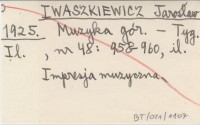 IWASZKIEWICZ Jarosław
1925. Muzyka gór. – Tyg.
Il., nr 48: 958-960, il.
Impresja muzyczna.
BT/021/1107